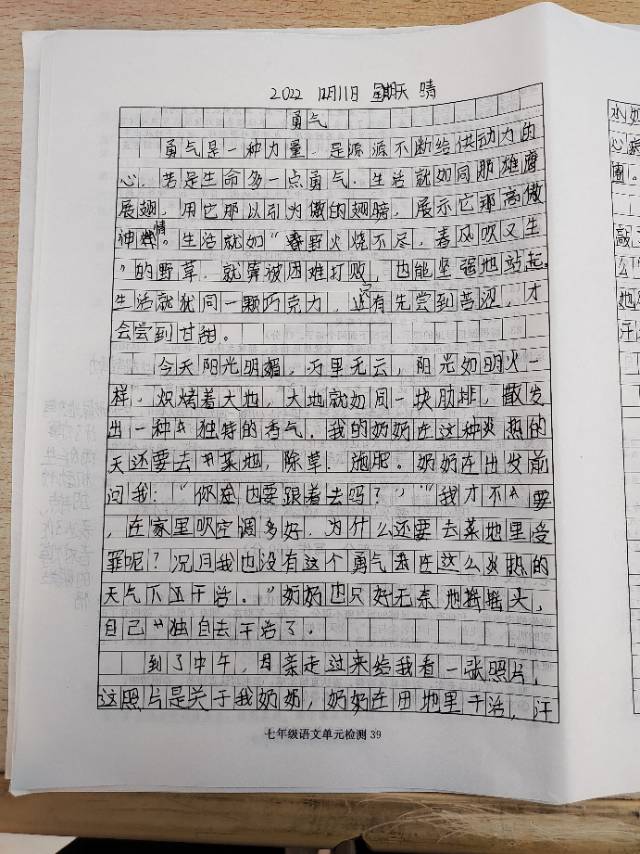 2022 12月11日 星期天 晴
勇气
勇气是一种力量，是源源不断给供动力的
心，若是生命多一点勇气，生活就如同肋雄鹰
展翅，用它那以引为傲的翅膀，展示它那高傲
神情。生活就如“春野火烧不尽，春风吹又生
”的野草，就算被困难打败，也能坚强地站起，
生活就犹同一颗巧克力，还有先尝到苦涩，才
会尝到甘甜。
今天阳光明媚，万里无云，阳光如明火一
样，炽烤着大地，大地就如同一块肋排，散发
出一种独特的香气。我的奶奶在这种炎热的
天还要去菜地，除草，施肥。奶奶在出发前
问我：“你在也要跟着去吗？”“我才不要
，在家里吹空调多好，为什么还要去菜地里受
罪呢？况且我也没有这个勇气我在这么炎热的
天气下还干活。”奶奶也只好无奈地摇摇头，
自己独自去干活了。
到了中午，母亲走过来给我看一张照片，
这照片是关于我奶奶，奶奶在田地里干活，汗
七年级语文单元检测 39
水如
心
。
敲
么
她
汗